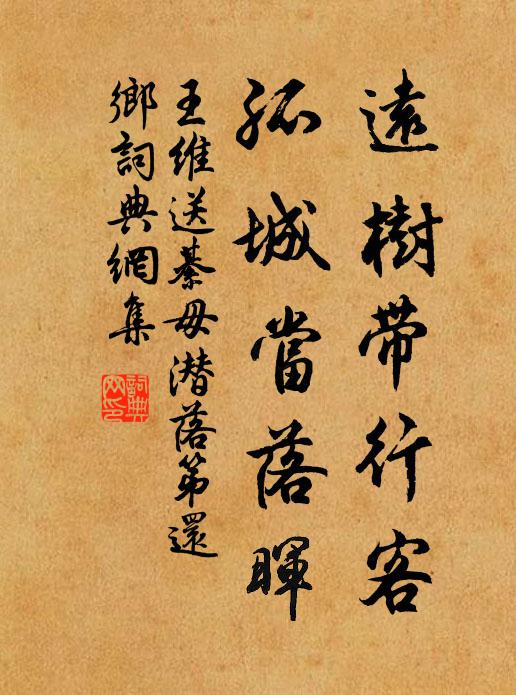 遠樹帶行客
孤城當落暉
王維送綦毋潛落第還
鄉詞典網集
詞典
网印